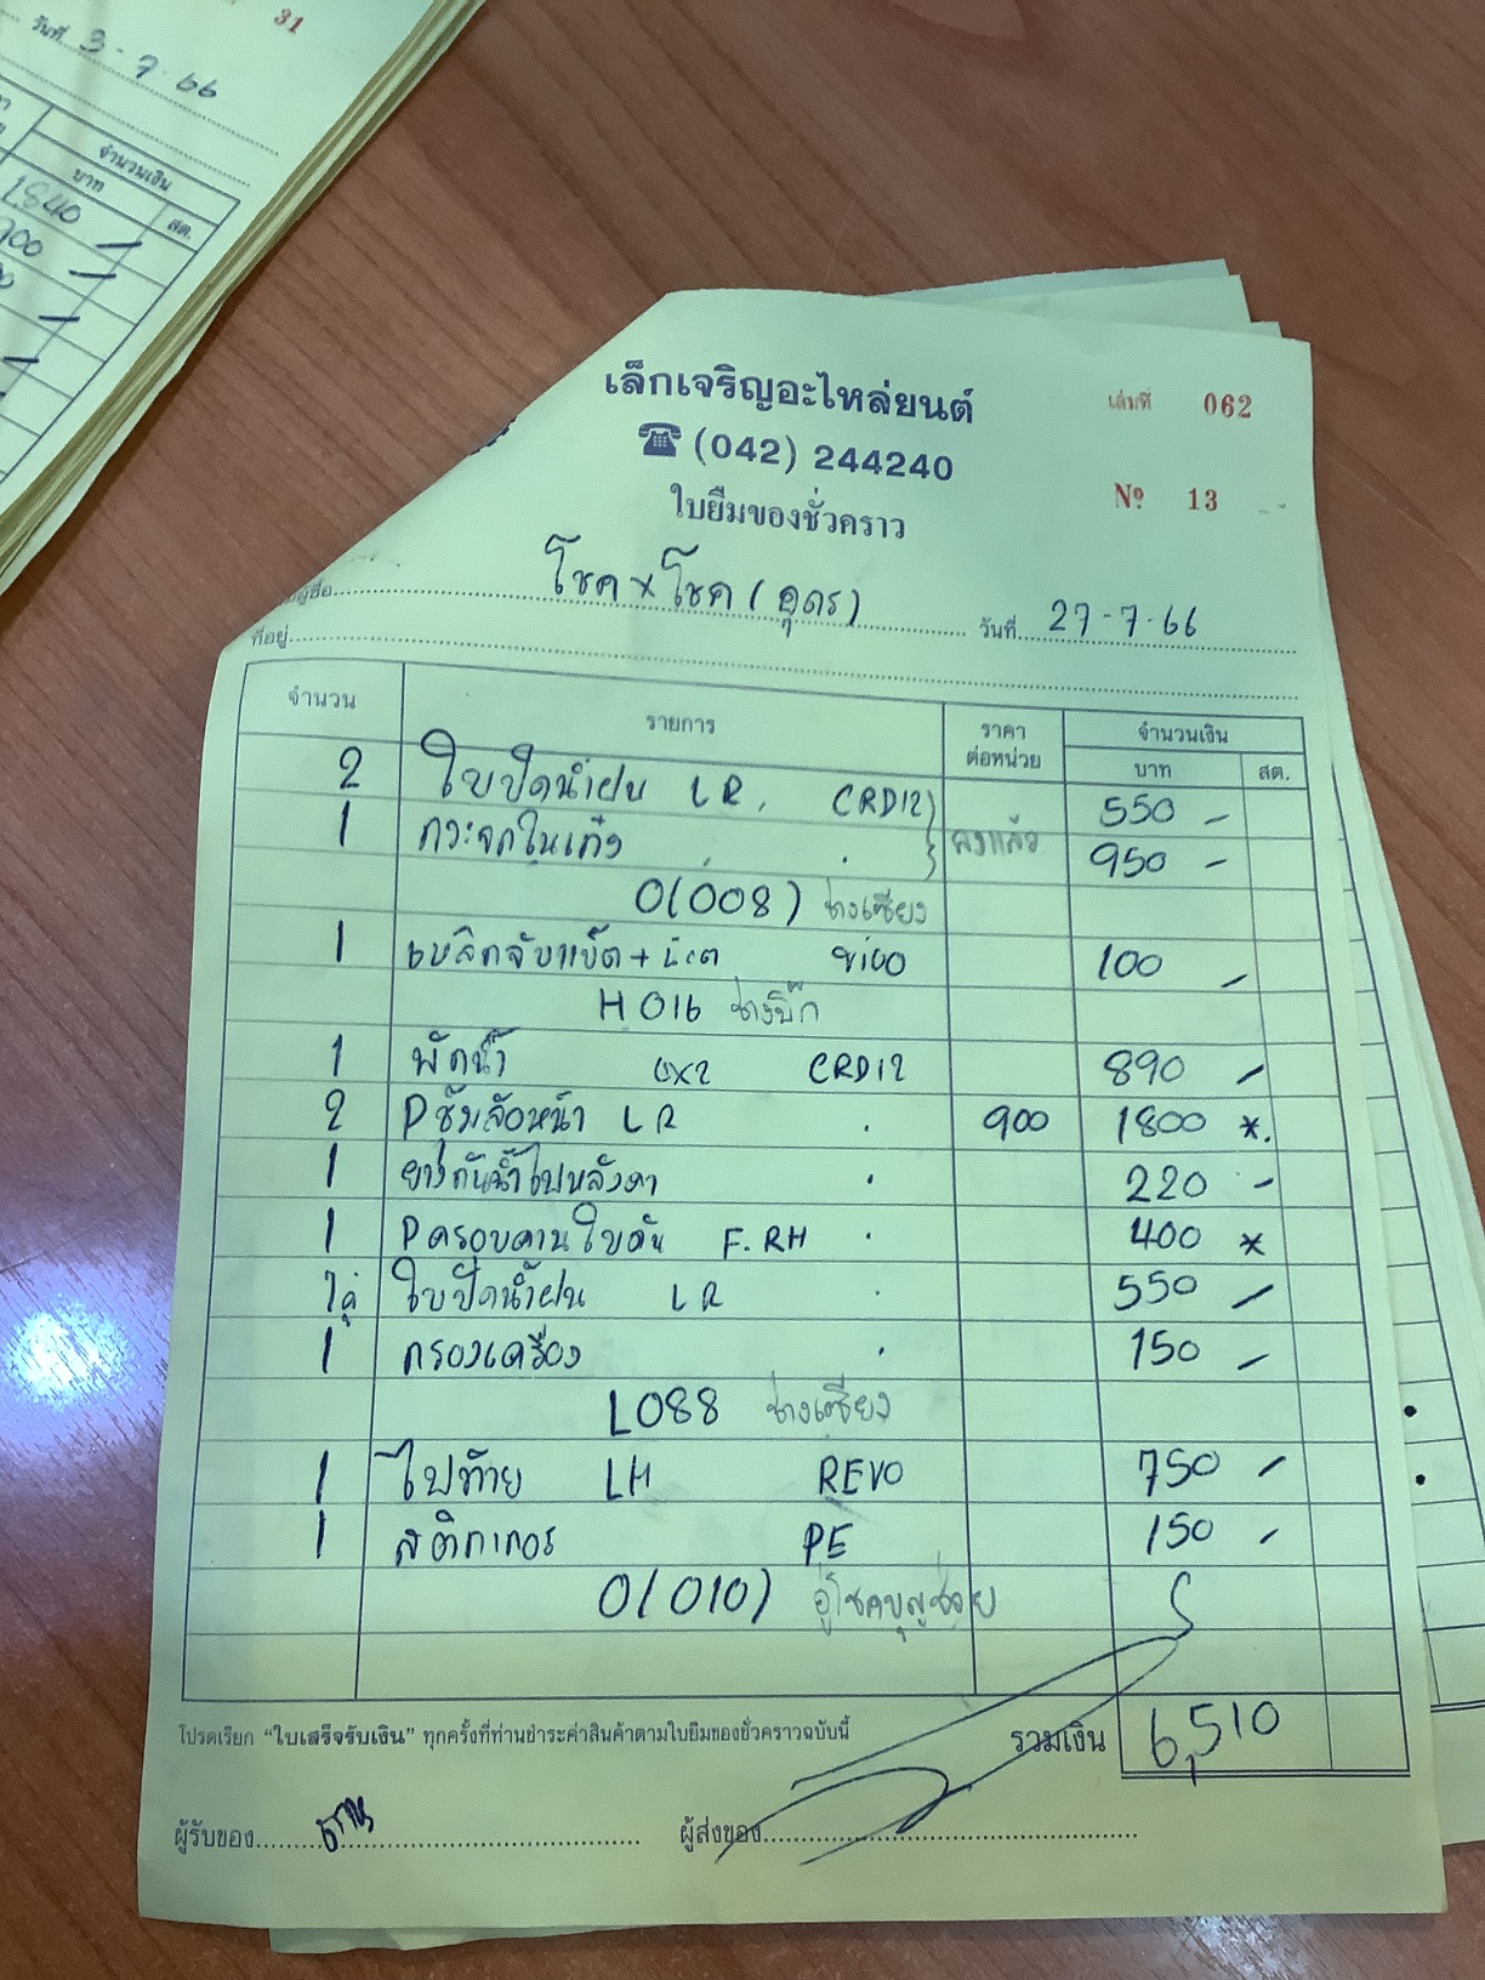 31
วันที่ 3-7-66
จำนวนเงิน
บาท สต.
1,840 -
900 -
เล็กเจริญอะไหล่ยนต์ เล่มที่ 062
☎ (042) 244240
ใบยืมของชั่วคราว Nº 13
โชค x โชค (อุดร) วันที่ 27-7-66
ที่อยู่
จำนวน รายการ ราคาต่อหน่วย จำนวนเงิน
บาท สต.
2 ใบปัดน้ำฝน LR. (RD12) 550 -
1 กระจกในเก๋ง . ลงแล้ว 950 -
O(008) ช่างเซียง
1 เหล็กจับแบ็ต+น๊อต 100 -
H016 ช่างบิ๊ก
1 พัดน้ำ 4x2 CRD12 890 -
2 Pซุ้มล้อหน้า LR . 900 1800 *.
1 ยางกันน้ำบนหลังคา . 220 -
1 Pครอบคาน F.RH . 400 *
1คู่ ใบปัดน้ำฝน LR . 550 -
1 กรองเครื่อง . 150 -
L088 ช่างเซียง
1 ไฟท้าย LH REVO 750 -
1 สติกเกอร์ PE 150 -
O(010) อู่โชคบุญช่วย
โปรดเรียก "ใบเสร็จรับเงิน" ทุกครั้งที่ท่านชำระค่าสินค้าตามใบยืมของชั่วคราวฉบับนี้ รวมเงิน 6,510
ผู้รับของ ผู้ส่งของ